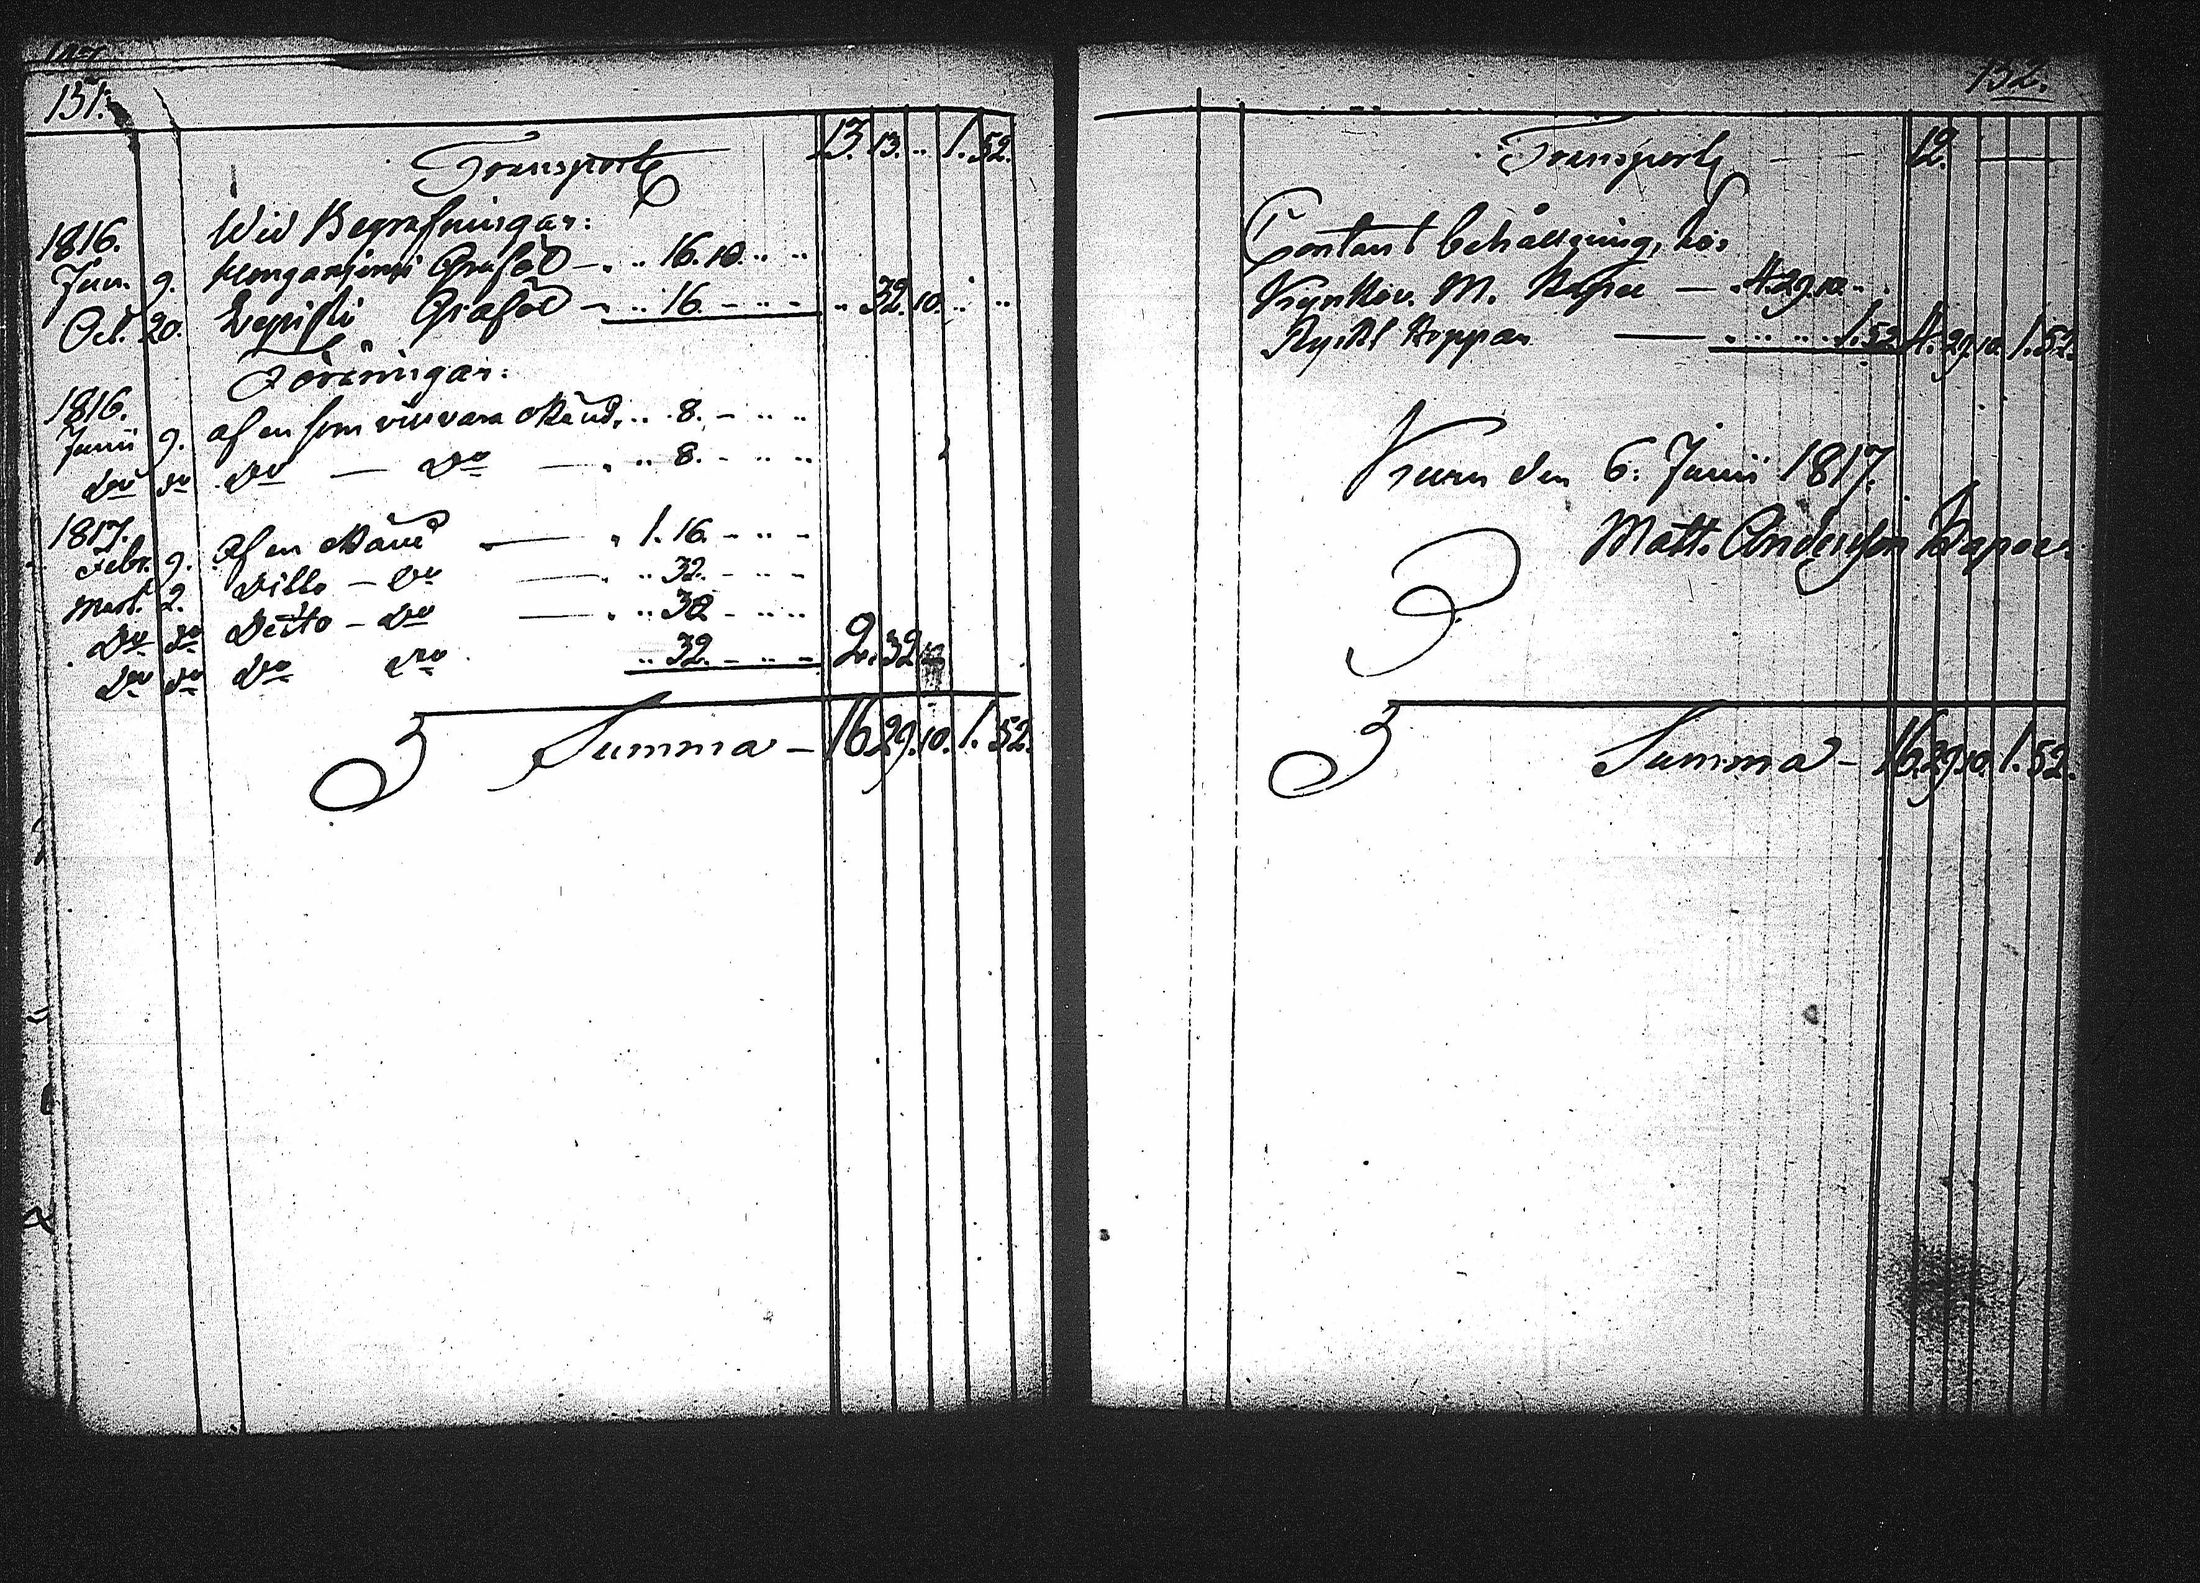 151.
Transport 13. 13. .. 1. 52.
1816. Wid Begrafningar:
Jan. 9. Graföl — . .. 16. 10. .. ..
Oct. 20. Graföl — .. 16. — .. — .. 32. 10. .. ..
Föräringar:
1816.
Junii 9. af en som vill vara okänd. .. 8. — .. ..
do do do — do — . .. 8. — .. ..
1817.
Febr. 9. Af en okänd — . 1. 16. — .. —
Mart. 2. Ditto — do — . .. 32. — .. —
do do Ditto — do — . .. 32 — .. ..
do do do do .. 32. — .. — 2. 32
Summa — 16 29. 10. 1. 52.
132.
Transport — — 12. —
Contant behållning, hos
Kyrkov. M. — . 4. 29. 10. ..
Ryskt Koppar — . .. .. .. 1. 52 4. 29. 10. 1. 52.
den 6. Junii 1817.
Matts Andersson
Summa — 16. 29. 10. 1. 52.